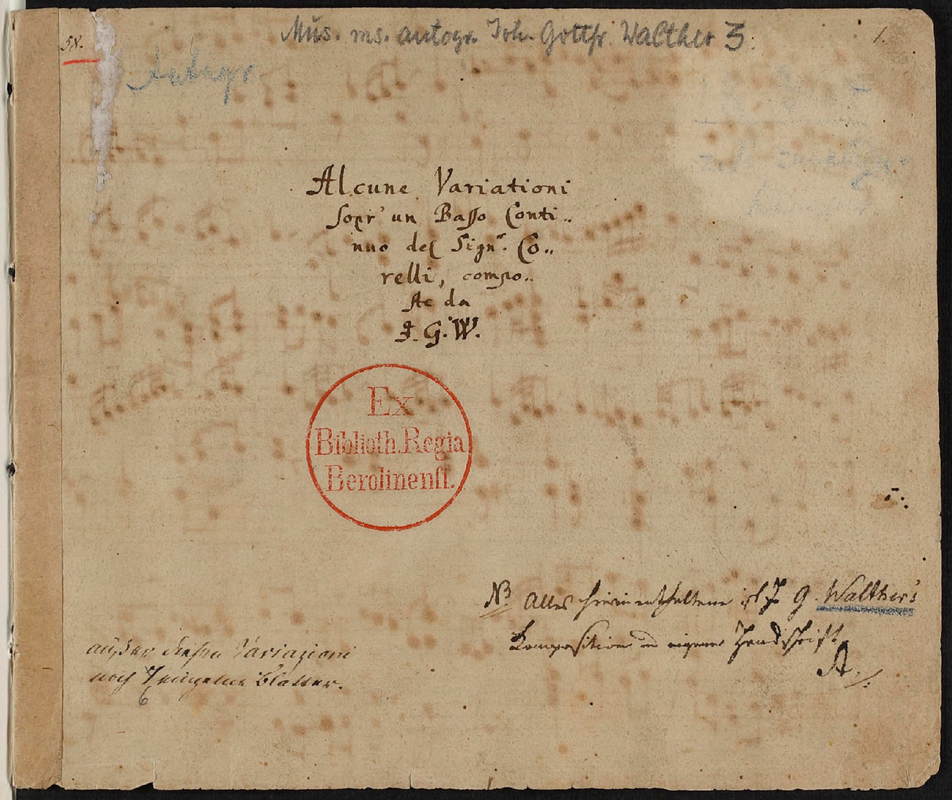 Mus. ms. autogr. Joh. Gottfr. Walther 3.
58.
1.
Autogr.
Alcune Variationi
sopr' un Basso Conti..
nuo del Sign.r Co..
relli, compo..
ste da
J. G. W.
Ex
Biblioth. Regia
Berolinensi.
NB Alles hierin enthaltene ist J G Walther's
Komposition u eigene Handschrift
A.
außer diesen Variazioni
noch einzelne Blätter.
6